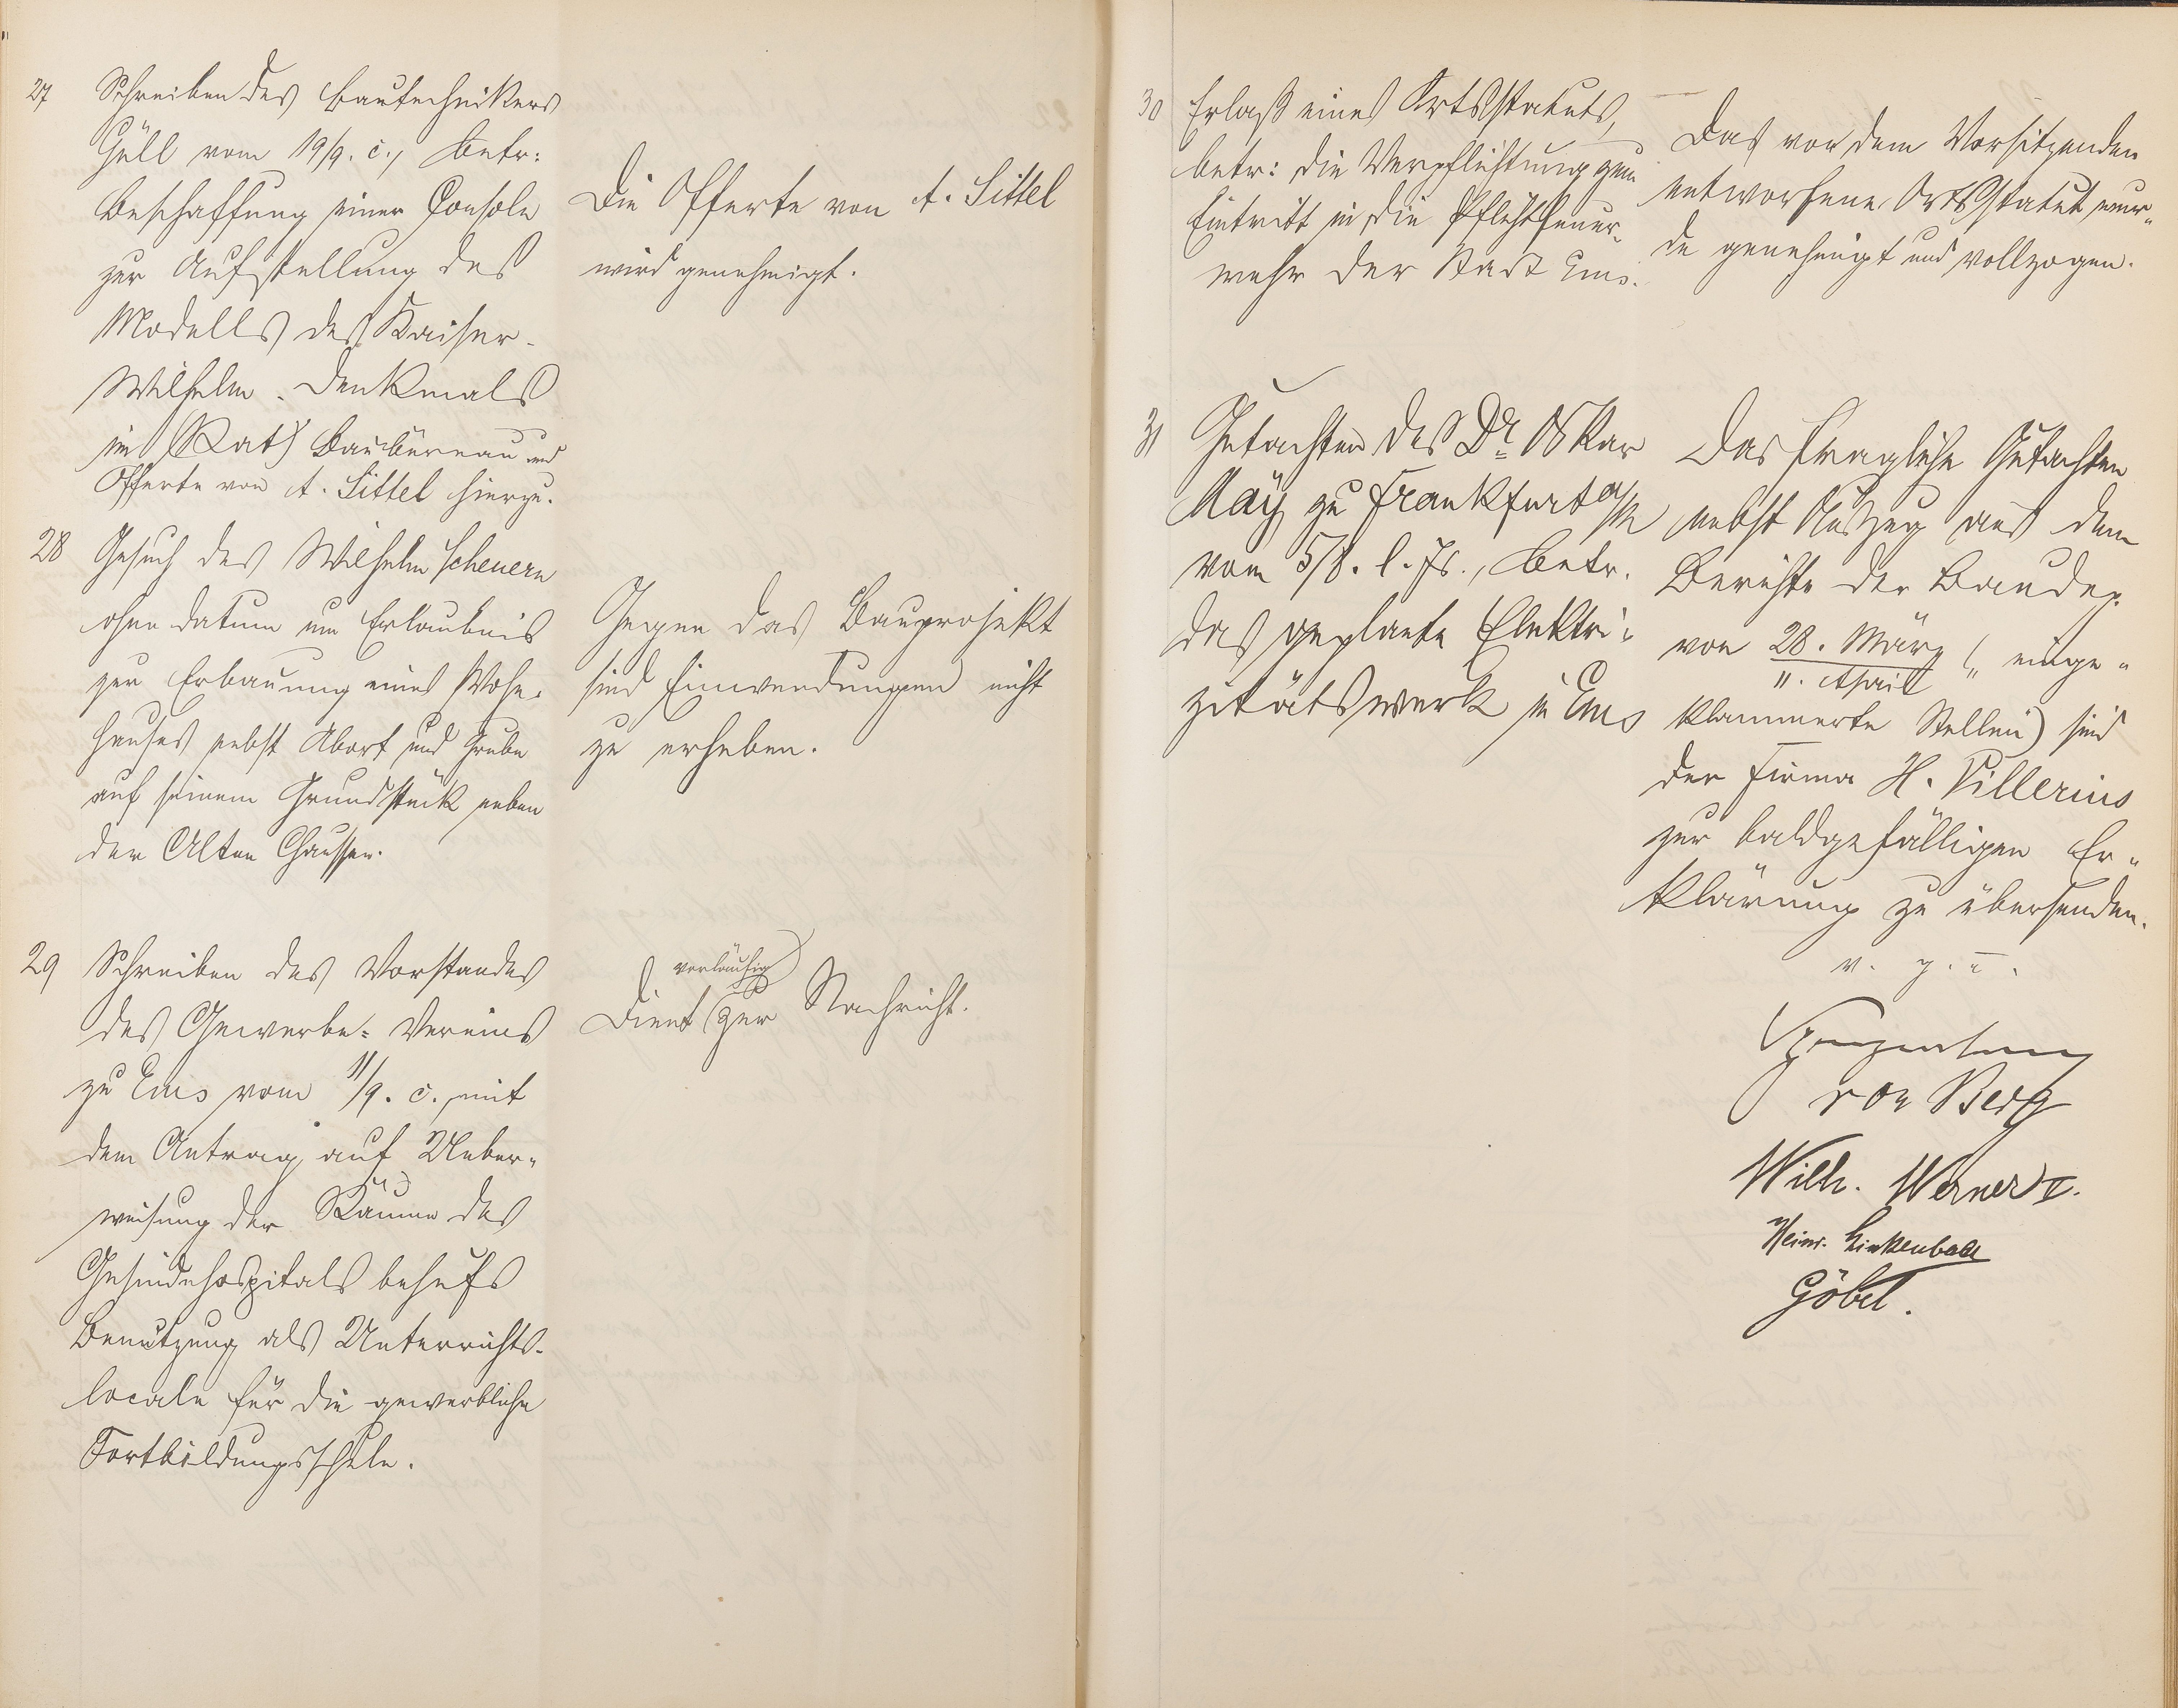 27 Schreiben des Bautechnikers
Güll vom 19/9. c., betr:
Beschaffung einer Console
zur Aufstellung des
Modells des Kaiser-
Wilhelm-Denkmals
im Baubüreau und
Offerte von A. Sittel hierzu.
Die Offerte von A. Sittel
wird genehmigt.
28 Gesuch des Wilhelm Scheuern
ohne Datum um Erlaubnis
zur Erbauung eines Wohn-
hauses nebst Abort und Grube
auf seinem Grundstück neben
der Alten Chaussee.
Gegen das Bauprojekt
sind Einwendungen nicht
zu erheben.
29 Schreiben des Vorstandes
des Gewerbe-Vereins
zu Ems vom 11/9. c. mit
dem Antrag auf Ueber-
weisung der Räume des
Gesindehospitals behufs
Benutzung als Unterrichts-
locale für die gewerbliche
Fortbildungsschule.
vorläufig
Dient zur Nachricht.
30 Erlaß eines Ortsstatuts,
betr: die Verpflichtung zum
Eintritt in die Pflichtfeuer-
wehr der Stadt Ems.
Das von dem Vorsitzenden
entworfene Ortsstatut wur-
de genehmigt und vollzogen.
31 Gutachten des Dr. Oskar
May zu Frankfurt a/M
vom 5/8. l. Js., betr.
das geplante Elektri-
zitätswerk in Ems
Das fragliche Gutachten
nebst Auszug aus dem
Berichte der Baudep.
von 28. März (einge-
11. April
klammerte Stellen) sind
der Firma H. Villerius
zur baldgefälligen Er-
klärung zu übersenden.
v. g. u.
von Berg
Wilh. Werner I.
Heinr. Linkenbach
Göbel.